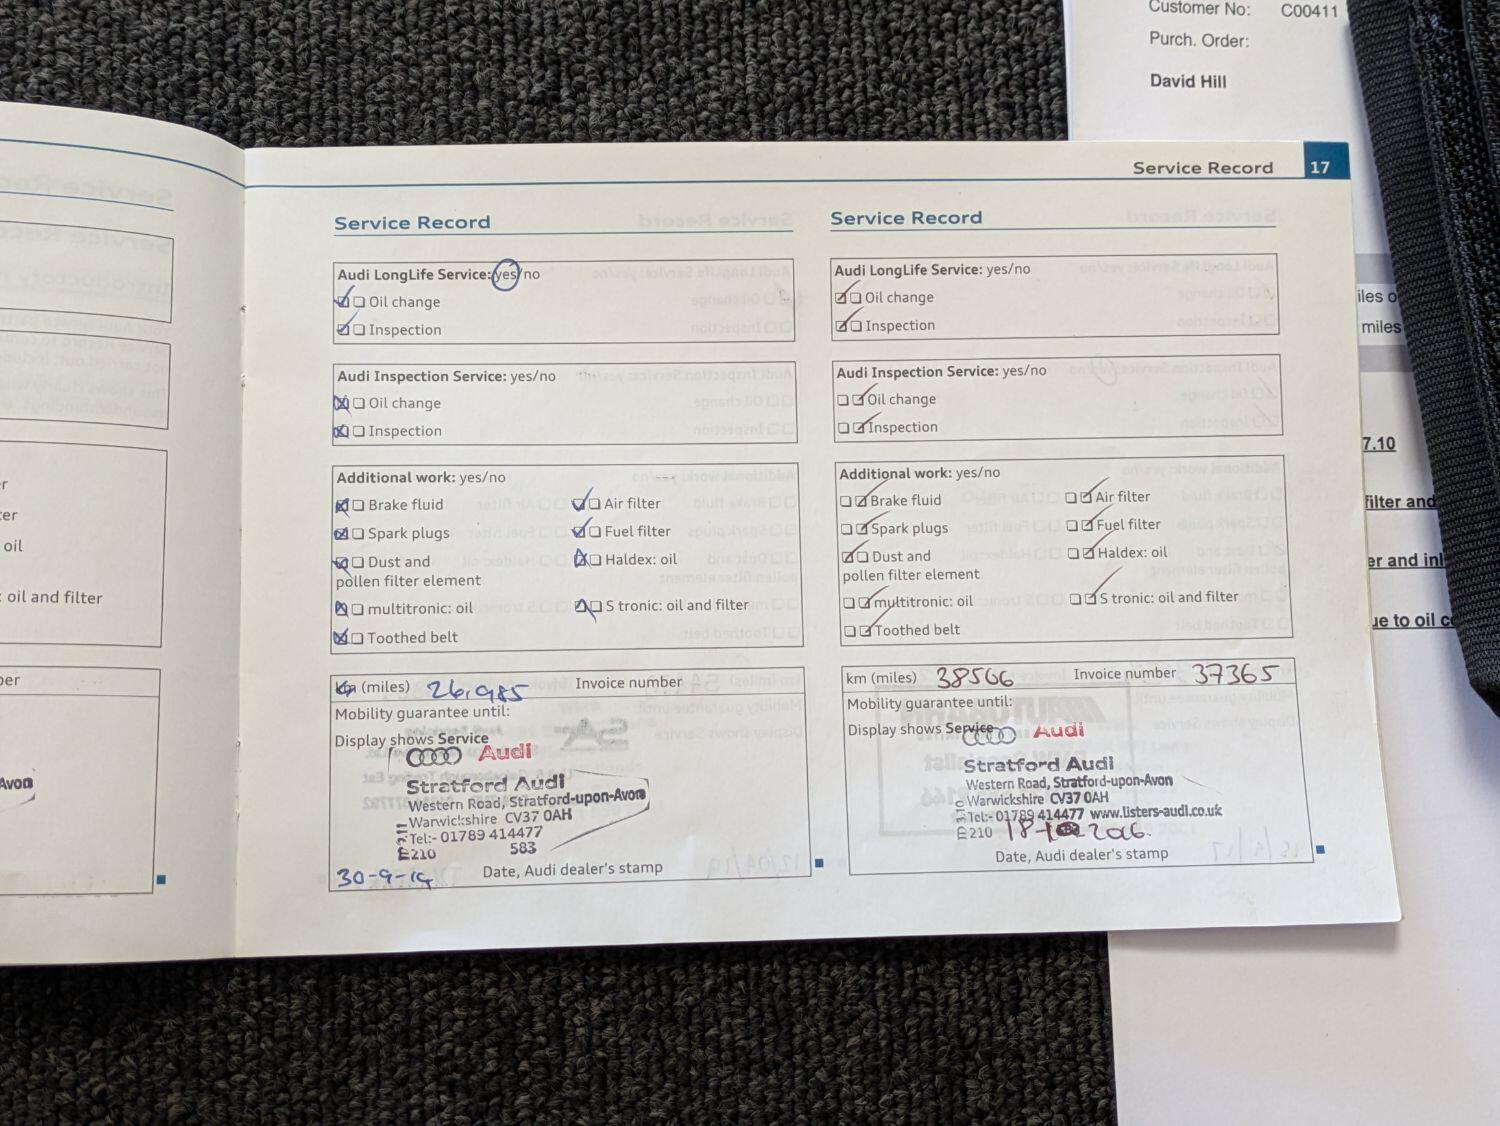 Customer No: C00411
Purch. Order:
David Hill
Service Record 17
Service Record
Audi LongLife Service: yes/no
Oil change
Inspection
Audi Inspection Service: yes/no
Oil change
Inspection
Additional work: yes/no
Brake fluid
Air filter
Spark plugs
Fuel filter
Dust and
pollen filter element
Haldex: oil
multitronic: oil
S tronic: oil and filter
Toothed belt
km (miles) 26,985 Invoice number
Mobility guarantee until:
Display shows Service
Audi
Stratford Audi
Western Road, Stratford-upon-Avon
Warwickshire CV37 0AH
Tel:- 01789 414477
E210 583
30-9-14 Date, Audi dealer's stamp
Service Record
Audi LongLife Service: yes/no
Oil change
Inspection
Audi Inspection Service: yes/no
Oil change
Inspection
Additional work: yes/no
Brake fluid
Air filter
Spark plugs
Fuel filter
Dust and
pollen filter element
Haldex: oil
multitronic: oil
S tronic: oil and filter
Toothed belt
km (miles) 38506 Invoice number 37365
Mobility guarantee until:
Display shows Service
Audi
Stratford Audi
Western Road, Stratford-upon-Avon
Warwickshire CV37 0AH
Tel:- 01789 414477 www.listers-audi.co.uk
E210
Date, Audi dealer's stamp
oil
oil and filter
Avon
miles
7.10
filter and